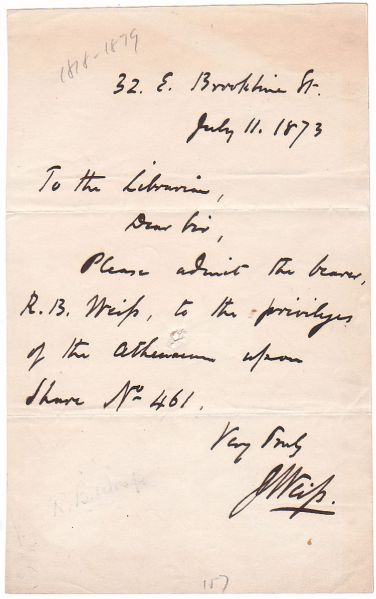 1818-1879
32. E. Brookline St.
July 11. 1873
To the Librarian,
Dear Sir,
Please admit the bearer,
R. B. Weiss, to the privileges
of the Athenaeum upon
Share No 461.
Very Truly
J Weiss.
R. B. Weiss
157